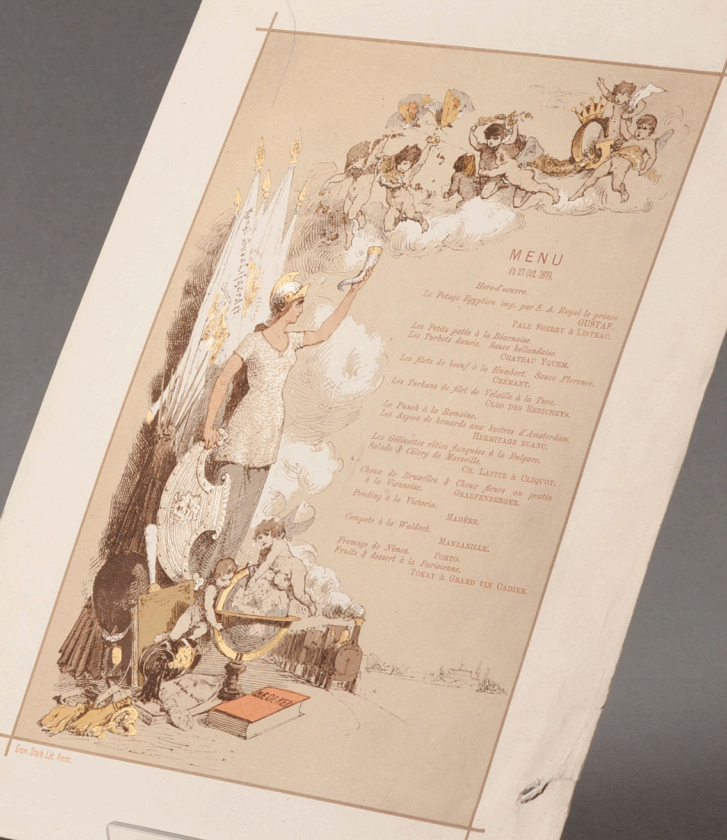 G
MENU
du 27 Oct. 1879.
Hors-d'oeuvre.
Le Potage Egyptien imp. par S. A. Royal le prince
GUSTAF.
PALE SHERRY & LISTRAC.
Les Petits patés à la Béarnaise.
Les Turbots danois. Sauce hollandaise.
CHATEAU YQUEM.
Les filets de boeuf à la Humbert. Sauce Florence.
CRÉMANT.
Les Turbans de filet de Volaille à la Turc.
CLOS DES BERICHEYS.
Le Punch à la Romaine.
Les Aspics de homards aux huitres d'Amsterdam.
HERMITAGE BLANC.
Les Gélinottes rôties flanquées à la Bulgare.
Salade & Céléry de Marseille.
CH. LAFITE & CLIQUOT.
Choux de Bruxelles & Choux fleurs au gratin
à la Viennoise.
GRAEFENBERGER.
Pouding à la Victoria.
MADÈRE.
Compote à la Waldeck.
MANZANILLE.
Fromage de Nimes.
PORTO.
Fruits & dessert à la Parisienne.
TOKAY & GRAND VIN CADIER.
BÆDEKER
Gen. Stab. Lit. Anst.